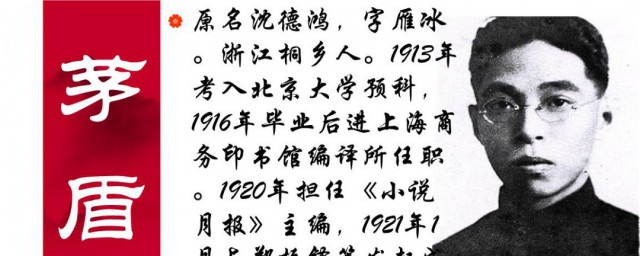 茅盾
原名沈德鸿，字雁冰
。浙江桐乡人。1913年
考入北京大学预科，
1916年毕业后进上海商
务印书馆编译所任职
。1920年担任《小说
月报》主编，1921年1